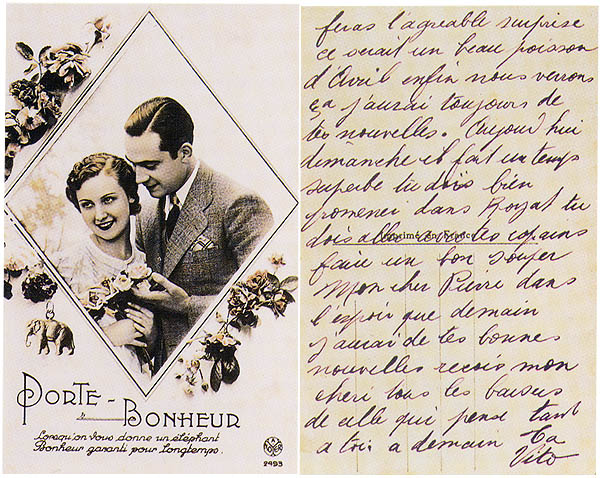 PORTE-
BONHEUR
Lorsqu'on vous donne un éléphant
Bonheur garanti pour longtemps.
2493
feras l'agreable surprise
ce serait un beau poisson
d'Avril enfin nous verrons
ça j'aurai toujours de
tes nouvelles. Aujourd'hui
dimanche il fait un temps
superbe tu dois bien
promener dans Royat tu
dois aller les copains
faire un bon souper
Mon cher Pierre dans
l'espoir que demain
j'aurai de tes bonnes
nouvelles recois mon
cheri tous les baisers
de celle qui pense tant
a toi a demain Ta
Vito